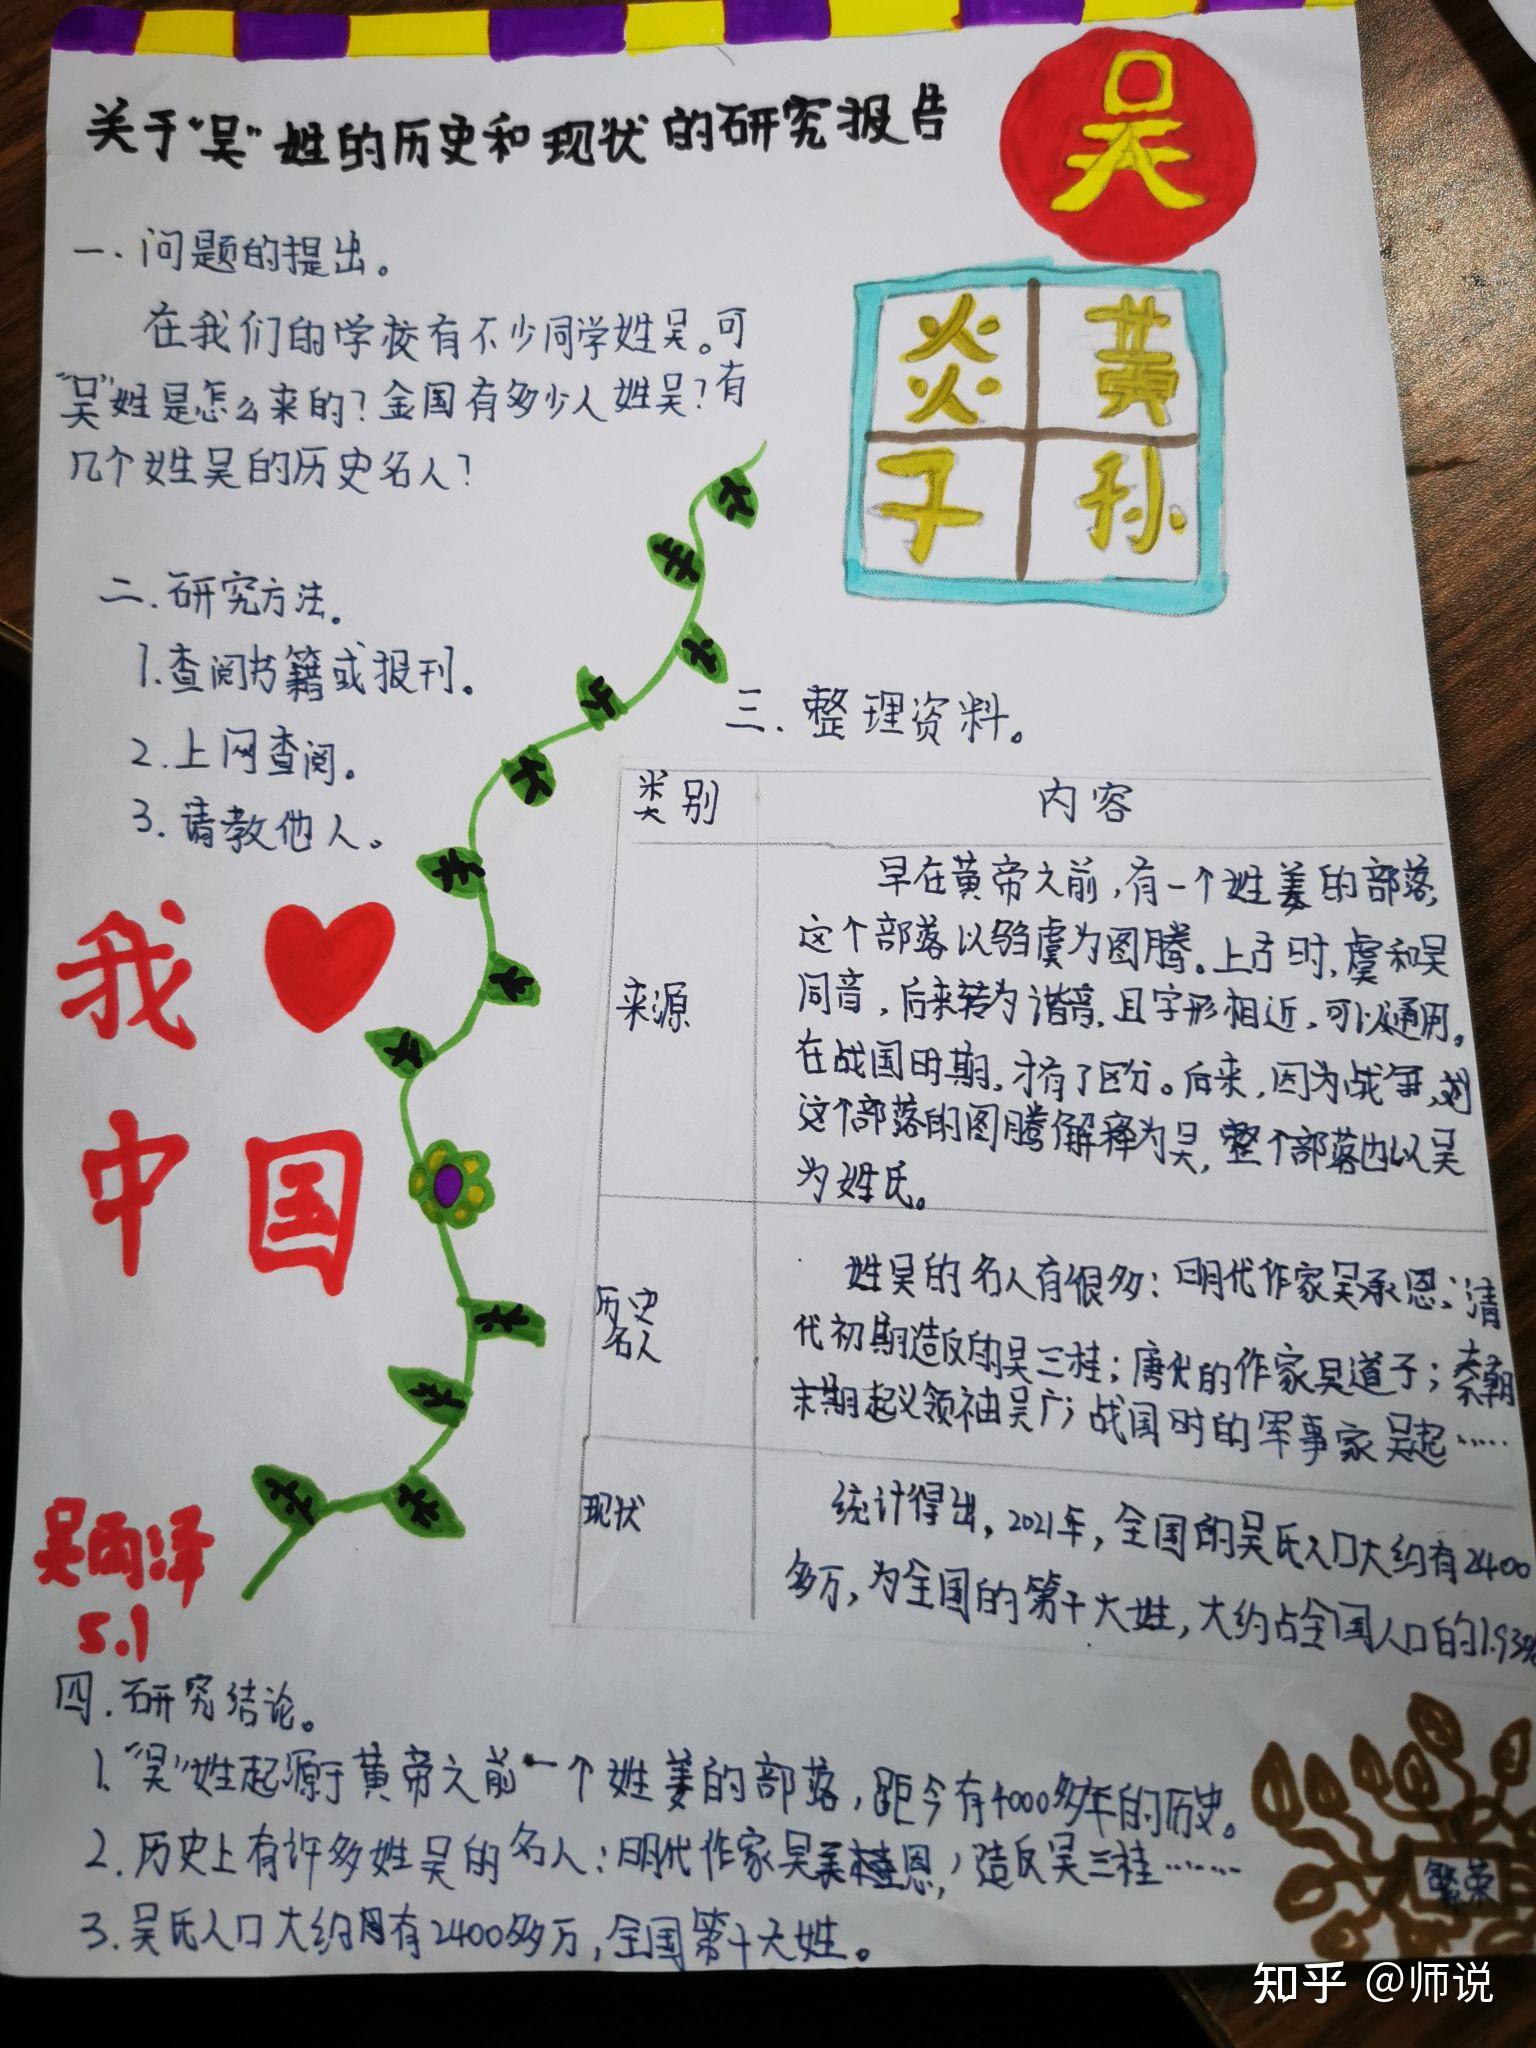 关于“吴”姓的历史和现状的研究报告
吴
炎 黄
子 孙
一.问题的提出。
在我们的学校有不少同学姓吴。可
“吴”姓是怎么来的?全国有多少人姓吴?有
几个姓吴的历史名人?
二.研究方法。
1.查阅书籍或报刊。
2.上网查阅。
3.请教他人。
我
中国
吴雨泽
5.1
三.整理资料。
类别 内容
来源
早在黄帝之前,有一个姓姜的部落,
这个部落以驺虞为图腾。上古时,虞和吴
同音,后来转为谐音,且字形相近,可以通用。
在战国时期,才有了区分。后来,因为战争,
这个部落的图腾解释为吴,整个部落也以吴
为姓氏。
历史
名人
姓吴的名人有很多:明代作家吴承恩;清
代初期造反的吴三桂;唐代的作家吴道子;秦朝
末期起义领袖吴广;战国时的军事家吴起……
现状
统计得出,2021年,全国的吴氏人口大约有2400
多万,为全国的第十大姓,大约占全国人口的1.93%
四.研究结论。
1.“吴”姓起源于黄帝之前一个姓姜的部落,距今有4000多年的历史。
2.历史上有许多姓吴的名人:明代作家吴恩,造反吴三桂……
3.吴氏人口大约有2400多万,全国第十大姓。
繁荣
知乎 @师说